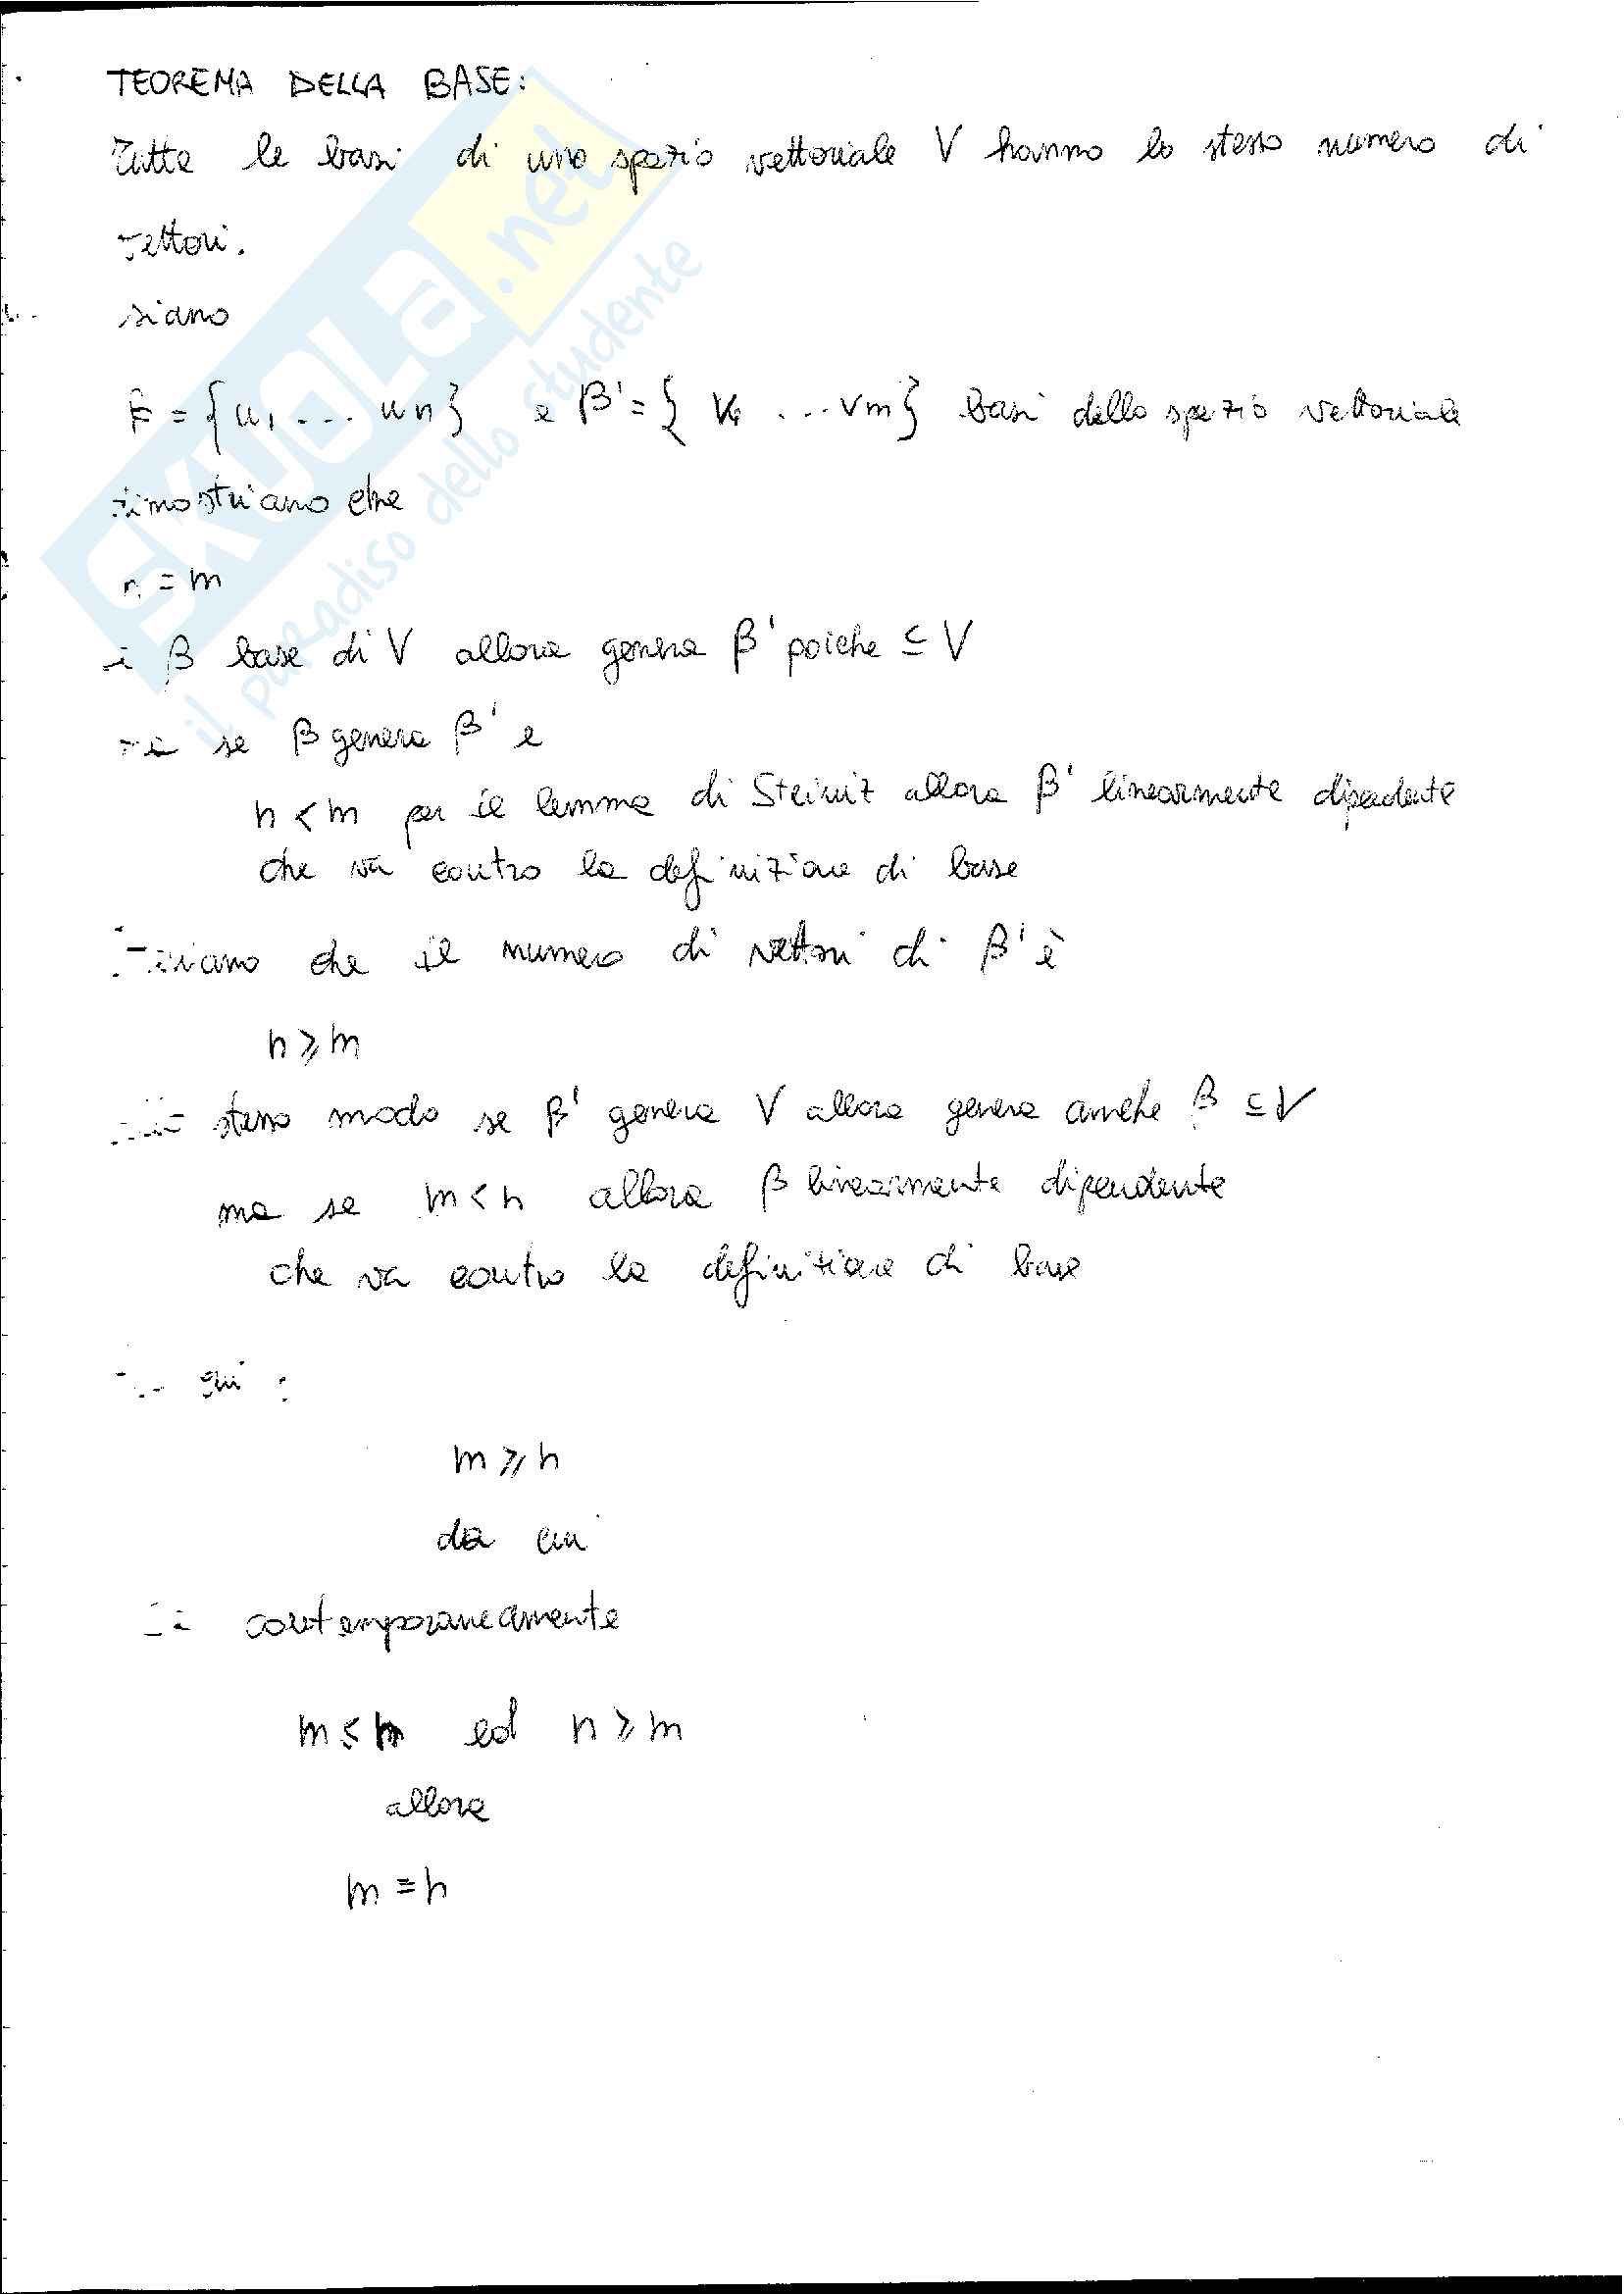 TEOREMA DELLA BASE:
Tutte le basi di uno spazio vettoriale V hanno lo stesso numero di
vettori.
siano
β = {u1 ... un} e β' = { v1 ... vm} basi dello spazio vettoriale
dimostriamo che
n = m
β base di V allora genera β' poiche ⊆ V
se β genera β' e
n < m per il lemma di Steiniz allora β' linearmente dipendente
che va contro la definizione di base
che il numero di vettori di β' è
n ⩾ m
stesso modo se β' genera V allora genera anche β ⊆ V
ma se m < n allora β linearmente dipendente
che va contro la definizione di base
m ⩾ n
da cui
contemporaneamente
m ⩽ n ed n ⩾ m
allora
m = n
SKUOLA.net
il paradiso dello studente